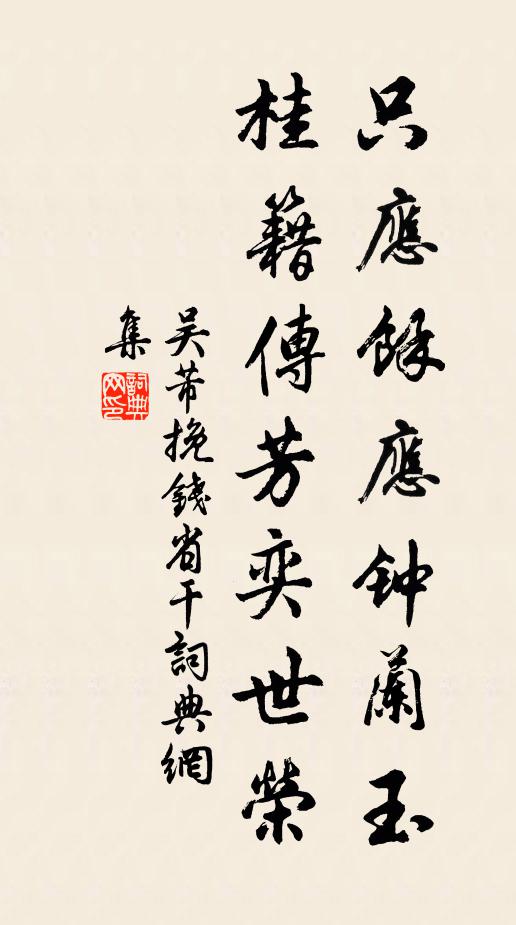 只應餘應钟蘭玉
桂籍傳芳奕世榮
吴芾挽錢省干詞典網
集
詞典網印